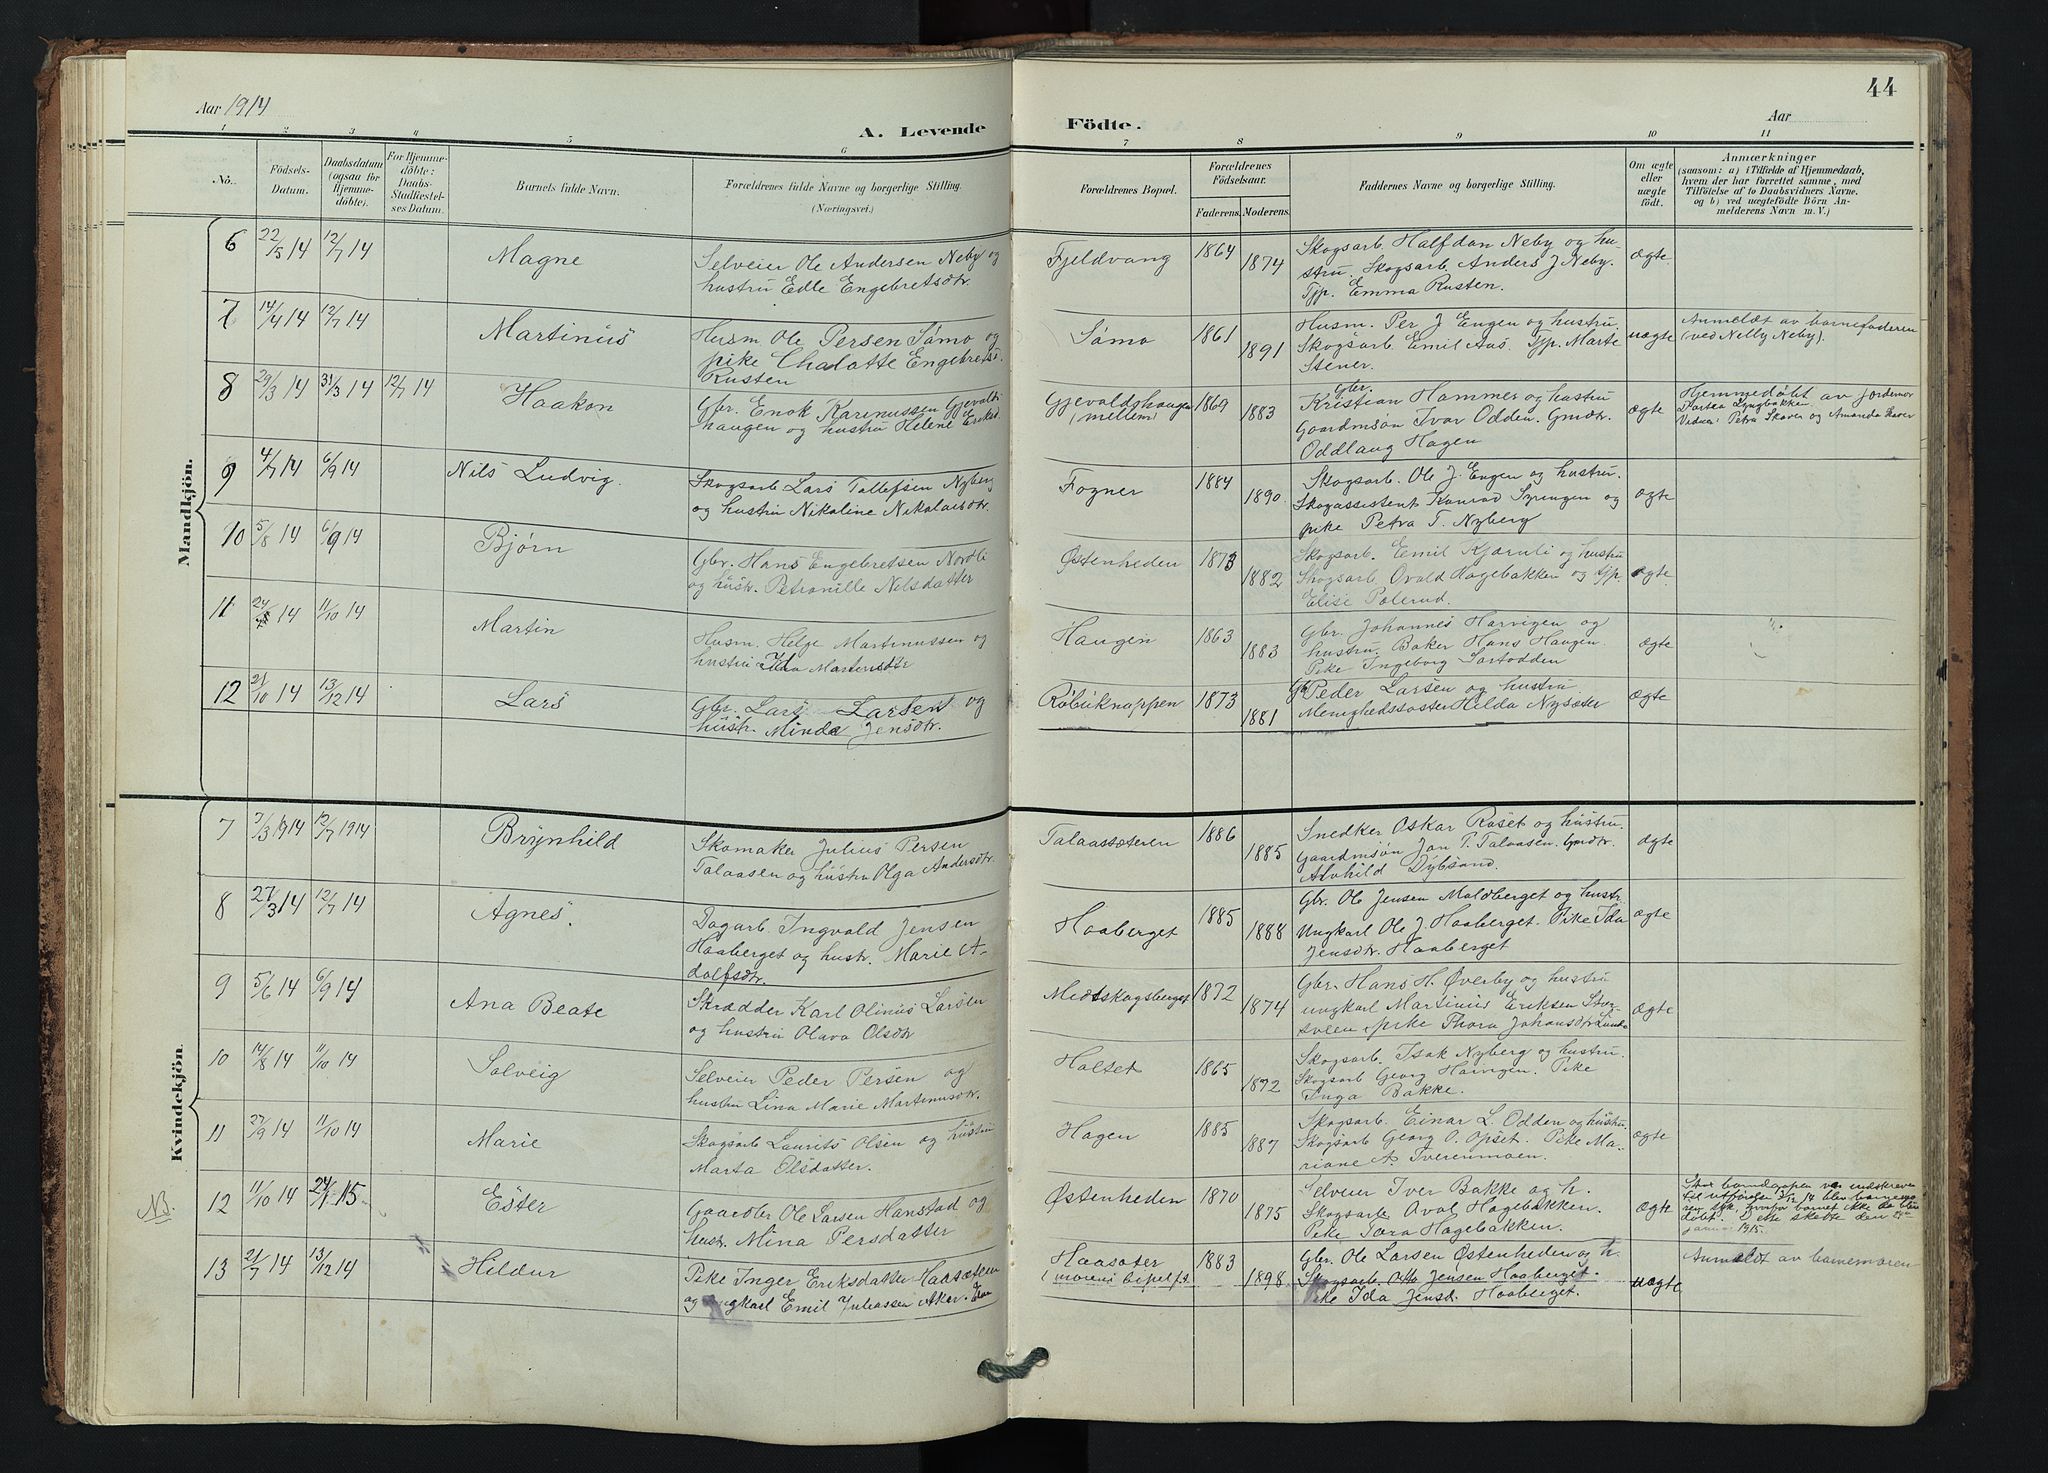 44
Aar 1914
A. Levende Födte.
Aar
1 2 3 4 5 6 7 8 9 10 11
No.
Födsels-
Datum.
Daabsdatum
(ogsaa for
Hjemme-
döbte).
For Hjemme-
döbte:
Daabs-
Stadfæstel-
ses Datum.
Barnets fulde Navn.
Forældrenes fulde Navne og borgerlige Stilling.
(Næringsvei.)
Forældrenes Bopæl.
Forældrenes
Födselsaar.
Faderens. Moderens.
Faddernes Navne og borgerlige Stilling.
Om ægte
eller
uægte
födt.
Anmærkninger
(saasom: a) i Tilfælde af Hjemmedaab,
hvem der har forrettet samme, med
Tilföielse af to Daabsvidners Navne.
og b) ved uægtefödte Börn An-
melderens Navn m. V.)
Mandkjön.
6 22/5 14 12/7 14 Magne
Selveier Ole Andersen Neby og
hustru Edle Engebretsdtr.
Fjeldvang 1864 1874
Skogsarb. Halfdan Neby og hu-
stru. Skogsarb. Anders J Neby.
Tjp. Emma Rusten.
ægte
7 14/4 14 12/7 14 Martinus
Husm. Ole Persen Sømo og
pike Chalotte Engebrets.
Rusten
Sømo 1861 1891
Husm. Per J Engen og hustru.
Skogsarb. Emil Aas. Tjp. Marte
Stener.
uægte
Anmeldt av barnefaderen
(ved Nelly Neby).
8 29/3 14 31/3 14 12/7 14 Haakon
Gbr. Enok Karinussen Gjevalds-
haugen og hustru Helene Eriksd.
Gjevaldshaugen
(mellem) 1869 1883
Gbr.
Kristian Hammer og hustru
Gaardmsøn Ivar Odden. Gmdtr.
Oddlaug Hagen
ægte
Hjemmedøbt av jordemor
Martea Lyngbakken
Vidner: Petra Skaver og Amanda Skaver
9 4/7 14 6/9 14 Nils Ludvig.
Skogsarb Lars Tollefsen Nyberg
og hustru Nikoline Nikolaisdtr.
Fogner 1884 1890.
Skogsarb. Ole J. Engen og hustru.
Skogassistent Konrad Syringen og
pike Petra T. Nyberg
ægte
10 5/8 14 6/9 14 Bjørn
Gbr. Hans Engebretsen Nordli
og hustr. Petronille Nilsdatter
Østenheden 1873 1882
Skogsarb. Emil Kjærnli og hustru
Skogsarb. Ovald Hagebakken og tjp.
Elise Polerud.
ægte
11 14 11/10 14 Martin
Husm. Helge Martinussen og
hustru Ida Martinsdtr
Haugen 1863 1883
Gbr. Johannes Harvigen og
hustru. Baker Hans Haugen.
Pike Ingeborg Sørtodden
ægte
12 21/10 14 13/12 14 Lars
Gbr. Lars Larsen og
hustr. Minda Jensdtr.
Røbuknappen 1873 1881
Gbr Peder Larsen og hustru
Menighedssøster Hilda Nysæter
ægte
Kvindekjön.
7 7/3 1914 12/7 1914 Brynhild
Skomaker Julius Persen
Talaasen og hustru Olga Andersdtr.
Talaassæteren 1886 1885
Snedker Oskar Roset og hustru.
Gaardmsøn Jon P. Talaasen. Gmdtr.
Alvhild Dybsand.
ægte
8 27/3 14 12/7 14 Agnes.
Dagarb. Ingvald Jensen
Haaberget og hustr. Marie A-
dolfsdtr.
Haaberget 1885 1888
Gbr. Ole Jensen Moldberget og hustr.
Ungkarl Ole J. Haaberget. Pike Ida
Jensdtr. Haaberget
ægte
9 5/6 14 6/9 14 Ana Beate
Skrædder Karl Olinus Larsen
og hustru Olava Olsdtr
Medskogsberget 1872 1874
Gbr. Hans H. Øverby og hustru
ungkarl Martinus Eriksen Stor-
sveen pike Thora Johansdtr Lunde
ægte
10 14/8 14 11/10 14 Solveig
Selveier Peder Persen og
hustru Lina Marie Martinusdtr.
Holtet 1865 1872
Skogsarb. Isak Nyberg og hustru.
Skogsarb Georg Haugen. Pike
Inga Bakke.
11 27/9 14 11/10 14 Marie
Skogsarb Laurits Olsen og hustru
Marta Olsdatter.
Hagen 1885 1887
Skogsarb. Einar L. Odden og hustru
Skogsarb Georg O. Opset. Pike Ma-
riane A. Tverenmoen.
ægte
NB. 12 11/10 14 24/1 15 Ester
Gaardbr Ole Larsen Hanstad og
hustr. Mina Persdatter
Østenheden 1870 1875
Selveier Iver Bakke og h.
Skogsarb. Oval Hagebakken.
Pike Tora Hagebakken.
ægte
blev barnemo-
ren syk, hvorfor barnet ikke da blev
døbt. Dette skedte den 24de
januar 1915.
13 21/7 14 13/12 14 Hildur
Pike Inger Eriksdatter Haasæteren
og ungkarl Emil Juliussen Aker.
Haasæter
(morens bopel f.t. 1883 1898
Gbr. Ole Larsen Østenheden og h.
Skogsarb. Otto Jensen Haaberget.
Pike Ida Jensd. Haaberget.
uægte
Anmeldt av barnemoren